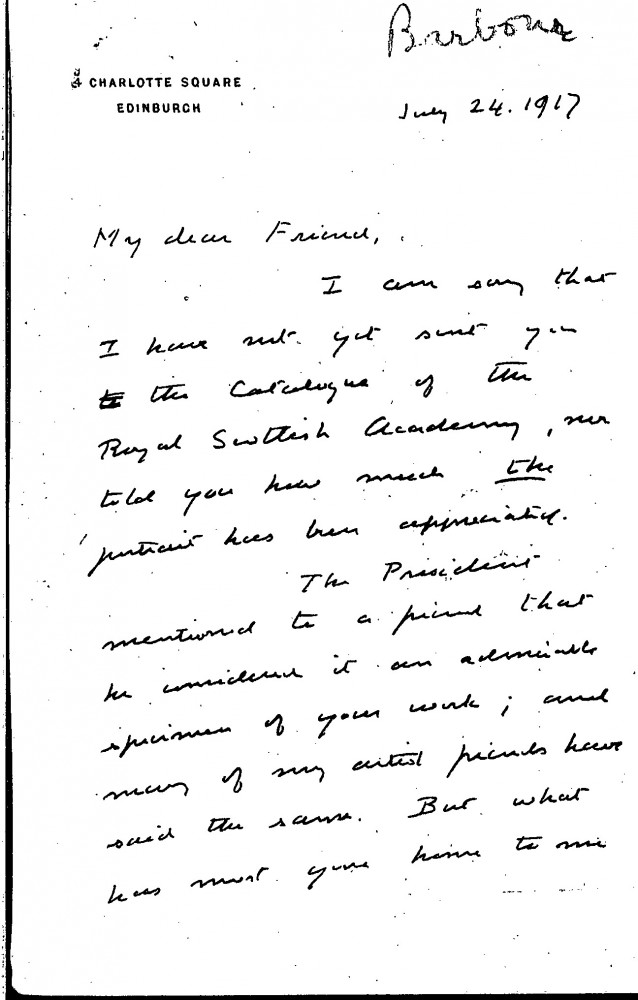 Barbour
CHARLOTTE SQUARE
EDINBURGH
July 24. 1917
My dear Friend,
I am sorry that
I have not yet sent you
the Catalogue of the
Royal Scottish Academy, nor
told you how much the
portrait has been appreciated.
The President
mentioned to a friend that
he considered it an admirable
specimen of your work; and
many of my artist friends have
said the same. But what
has most gone home to me